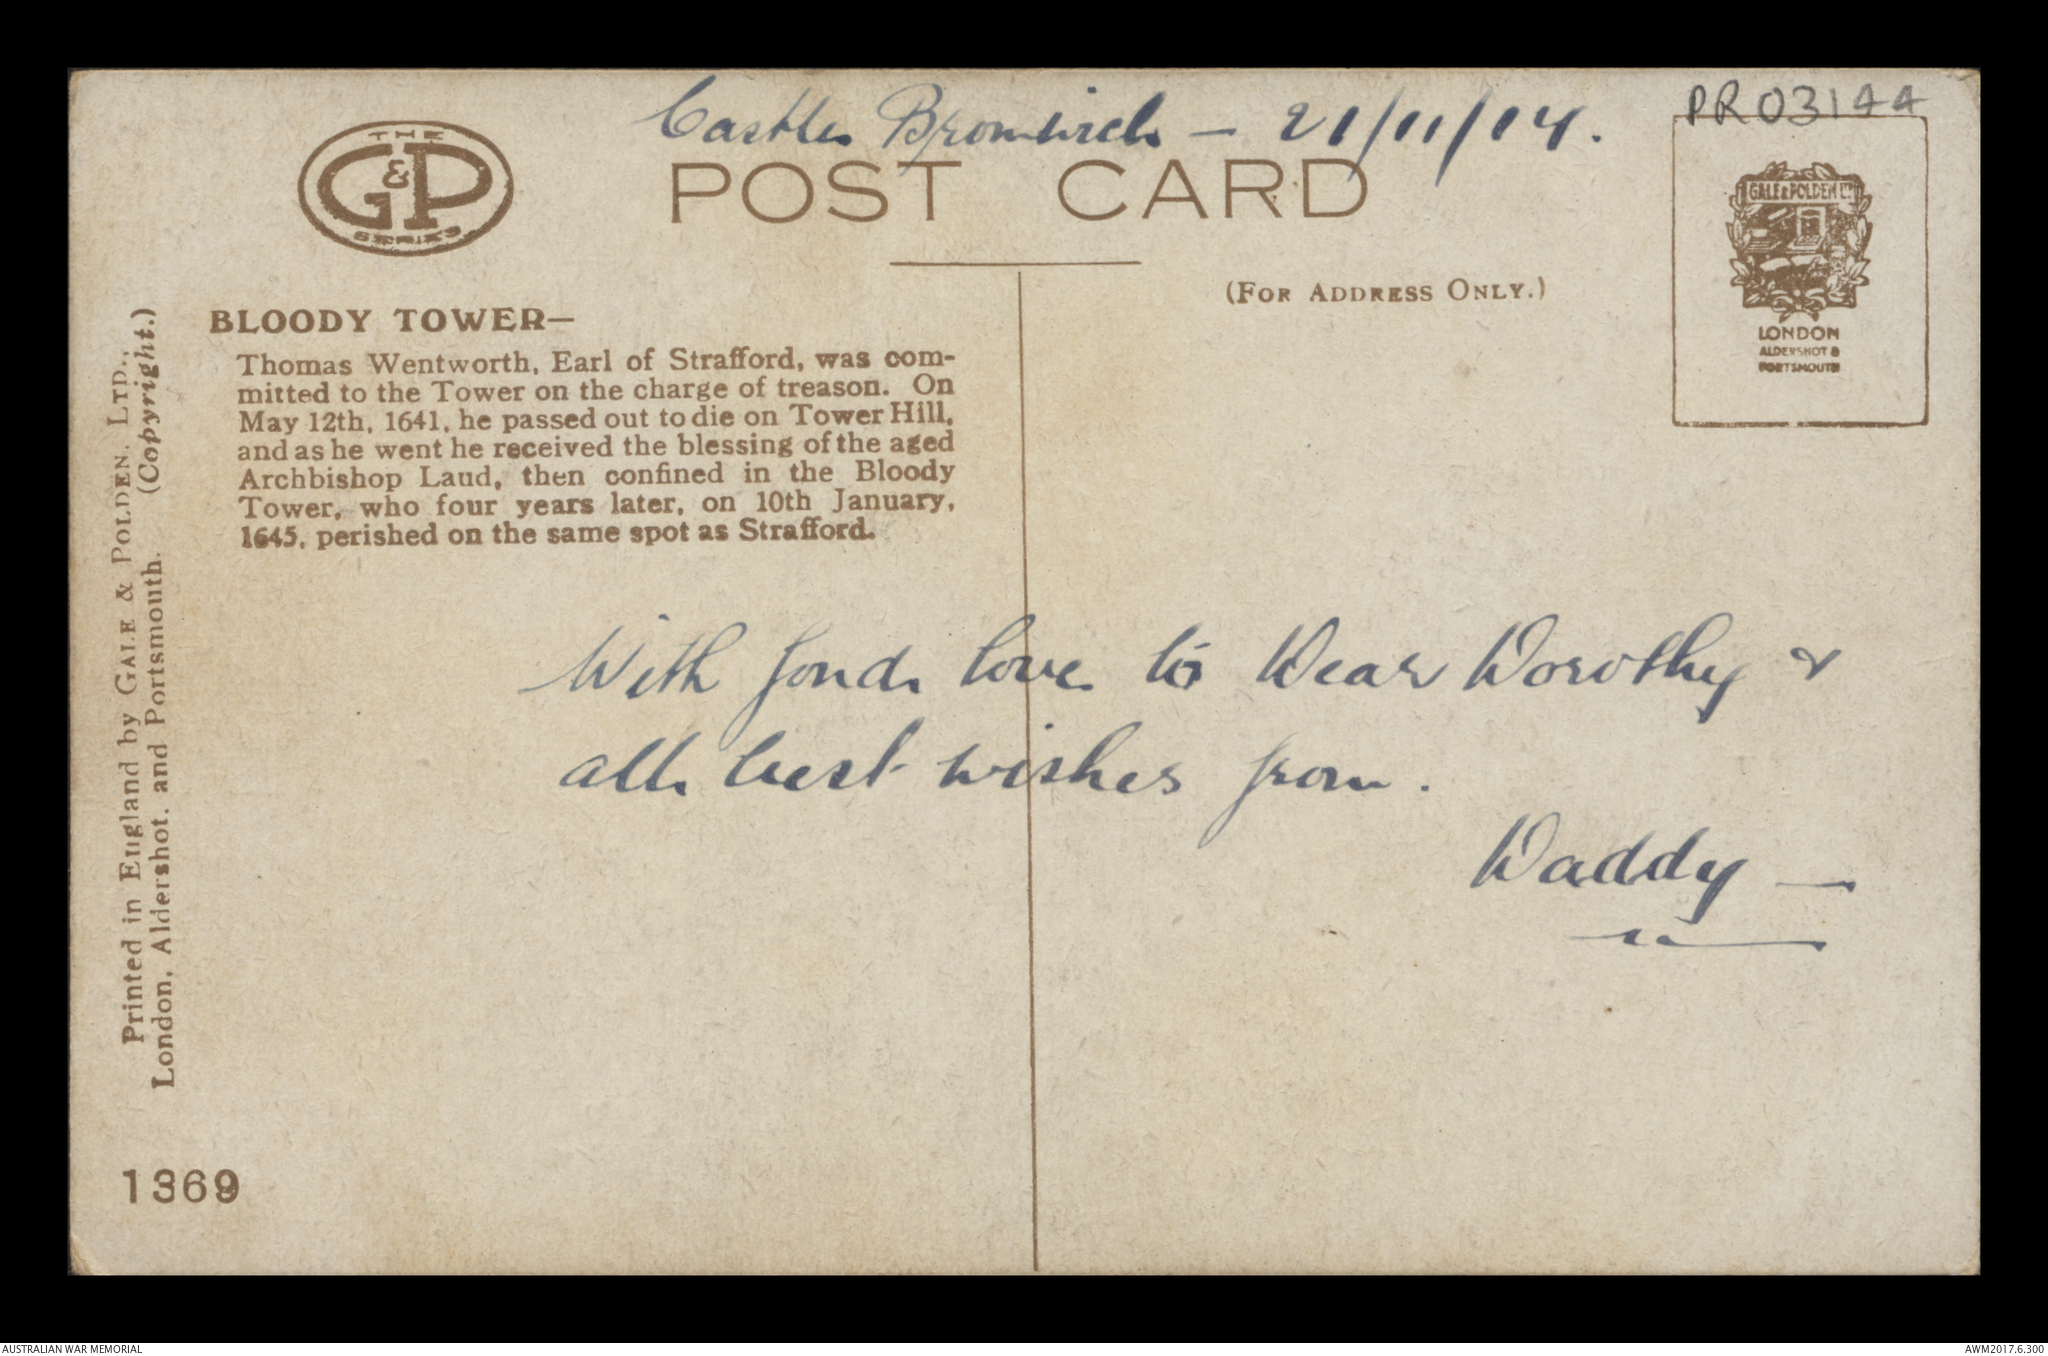 Castle Bromwich - 21/11/17.
PR03144
THE
G&P
SERIES
POST CARD
GALE & POLDEN LTD
LONDON
ALDERSHOT &
PORTSMOUTH
(FOR ADDRESS ONLY.)
BLOODY TOWER—
Thomas Wentworth, Earl of Strafford, was com-
mitted to the Tower on the charge of treason. On
May 12th, 1641, he passed out to die on Tower Hill,
and as he went he received the blessing of the aged
Archbishop Laud, then confined in the Bloody
Tower, who four years later, on 10th January,
1645, perished on the same spot as Strafford.
Printed in England by GALE & POLDEN, LTD.,
London, Aldershot, and Portsmouth. (Copyright.)
With fond love to Dear Dorothy &
all best wishes from.
Daddy —
1369
AUSTRALIAN WAR MEMORIAL
AWM2017.6.300